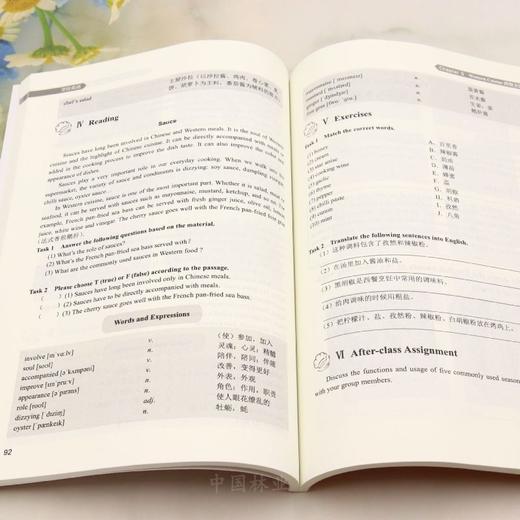 主厨沙拉（以沙拉酱、鸡肉、卷心菜、
饼、胡萝卜为主料，番茄酱为辅料的
chef's salad
Ⅳ Reading
Sauce
Sauces have long been involved in Chinese and Western meals. It is the soul of Western
cuisine and the highlight of Chinese cuisine. It can be directly accompanied with meals or
added in the cooking process to improve the dish taste. It can also improve the color and
appearance of dishes.
Sauces play a very important role in our everyday cooking. When we walk into the
supermarket, the variety of sauce and condiments is dizzying: soy sauce, dumpling vinegar,
chilli sauce, oyster sauce.
In Western cuisine, sauce is one of the most important part. Whether it is salad, meat or
seafood, it can be served with sauces such as mayonnaise, mustard, ketchup, and so on. For
example, French pan-fried sea bass can be served with fresh ginger juice, olive oil, lemon
juice, and white wine vinegar. The cherry sauce goes well with the French pan-fried fine goose
(法式香煎鹅肝).
Task 1 Answer the following questions based on the material.
(1) What's the role of sauces?
(2) What's the French pan-fried sea bass served with?
(3) What are the commonly used sauces in Western food ?
Task 2 Please choose T (true) or F (false) according to the passage.
( ) (1) Sauces have long been involved only in Chinese meals.
( ) (2) Sauces have to be directly accompanied with meals.
( ) (3) The cherry sauce goes well with the French pan-fried sea bass.
Words and Expressions
involve [ɪnˈvɑːlv] v. （使）参加，加入
soul [soʊl] n. 灵魂；心灵；精髓
accompanied [əˈkʌmpəni] v. 陪伴，陪同，伴随
improve [ɪmˈpruːv] v. 改善，变得更好
appearance [əˈpɪrəns] n. 外表，外观
role [roʊl] n. 角色；作用，职责
dizzying [ˈdɪziɪŋ] adj. 使人眼花缭乱的
oyster n. 牡蛎，蚝
92
n. 蛋黄酱
n. 芥末酱
n. 生姜，姜
n. 鹅肝酱
Ⅴ Exercises
Task 1 Match the correct words.
(1) honey A. 百里香
(2) cream B. 辣椒酱
(3) star anise C. 奶油
(4) cooking wine D. 薄荷
(5) garlic E. 蜂蜜
(6) thyme F. 蒜
(7) pepper G. 胡椒
(8) chilli paste H. 料酒
(9) cumin I. 孜然
(10) mint J. 八角
Task 2 Translate the following sentences into English.
（1）这种调料包含了孜然和辣椒粉。
（2）在汤里加入酱油和盐。
（3）黑胡椒是西餐烹饪中常用的调味料。
（4）给肉调味的时候用粗盐。
（5）把柠檬汁、盐、孜然粉、辣椒粉、白胡椒粉放在烤鸡上。
Ⅵ After-class Assignment
Discuss the functions and usage of five commonly used
with your group members.
中国林业